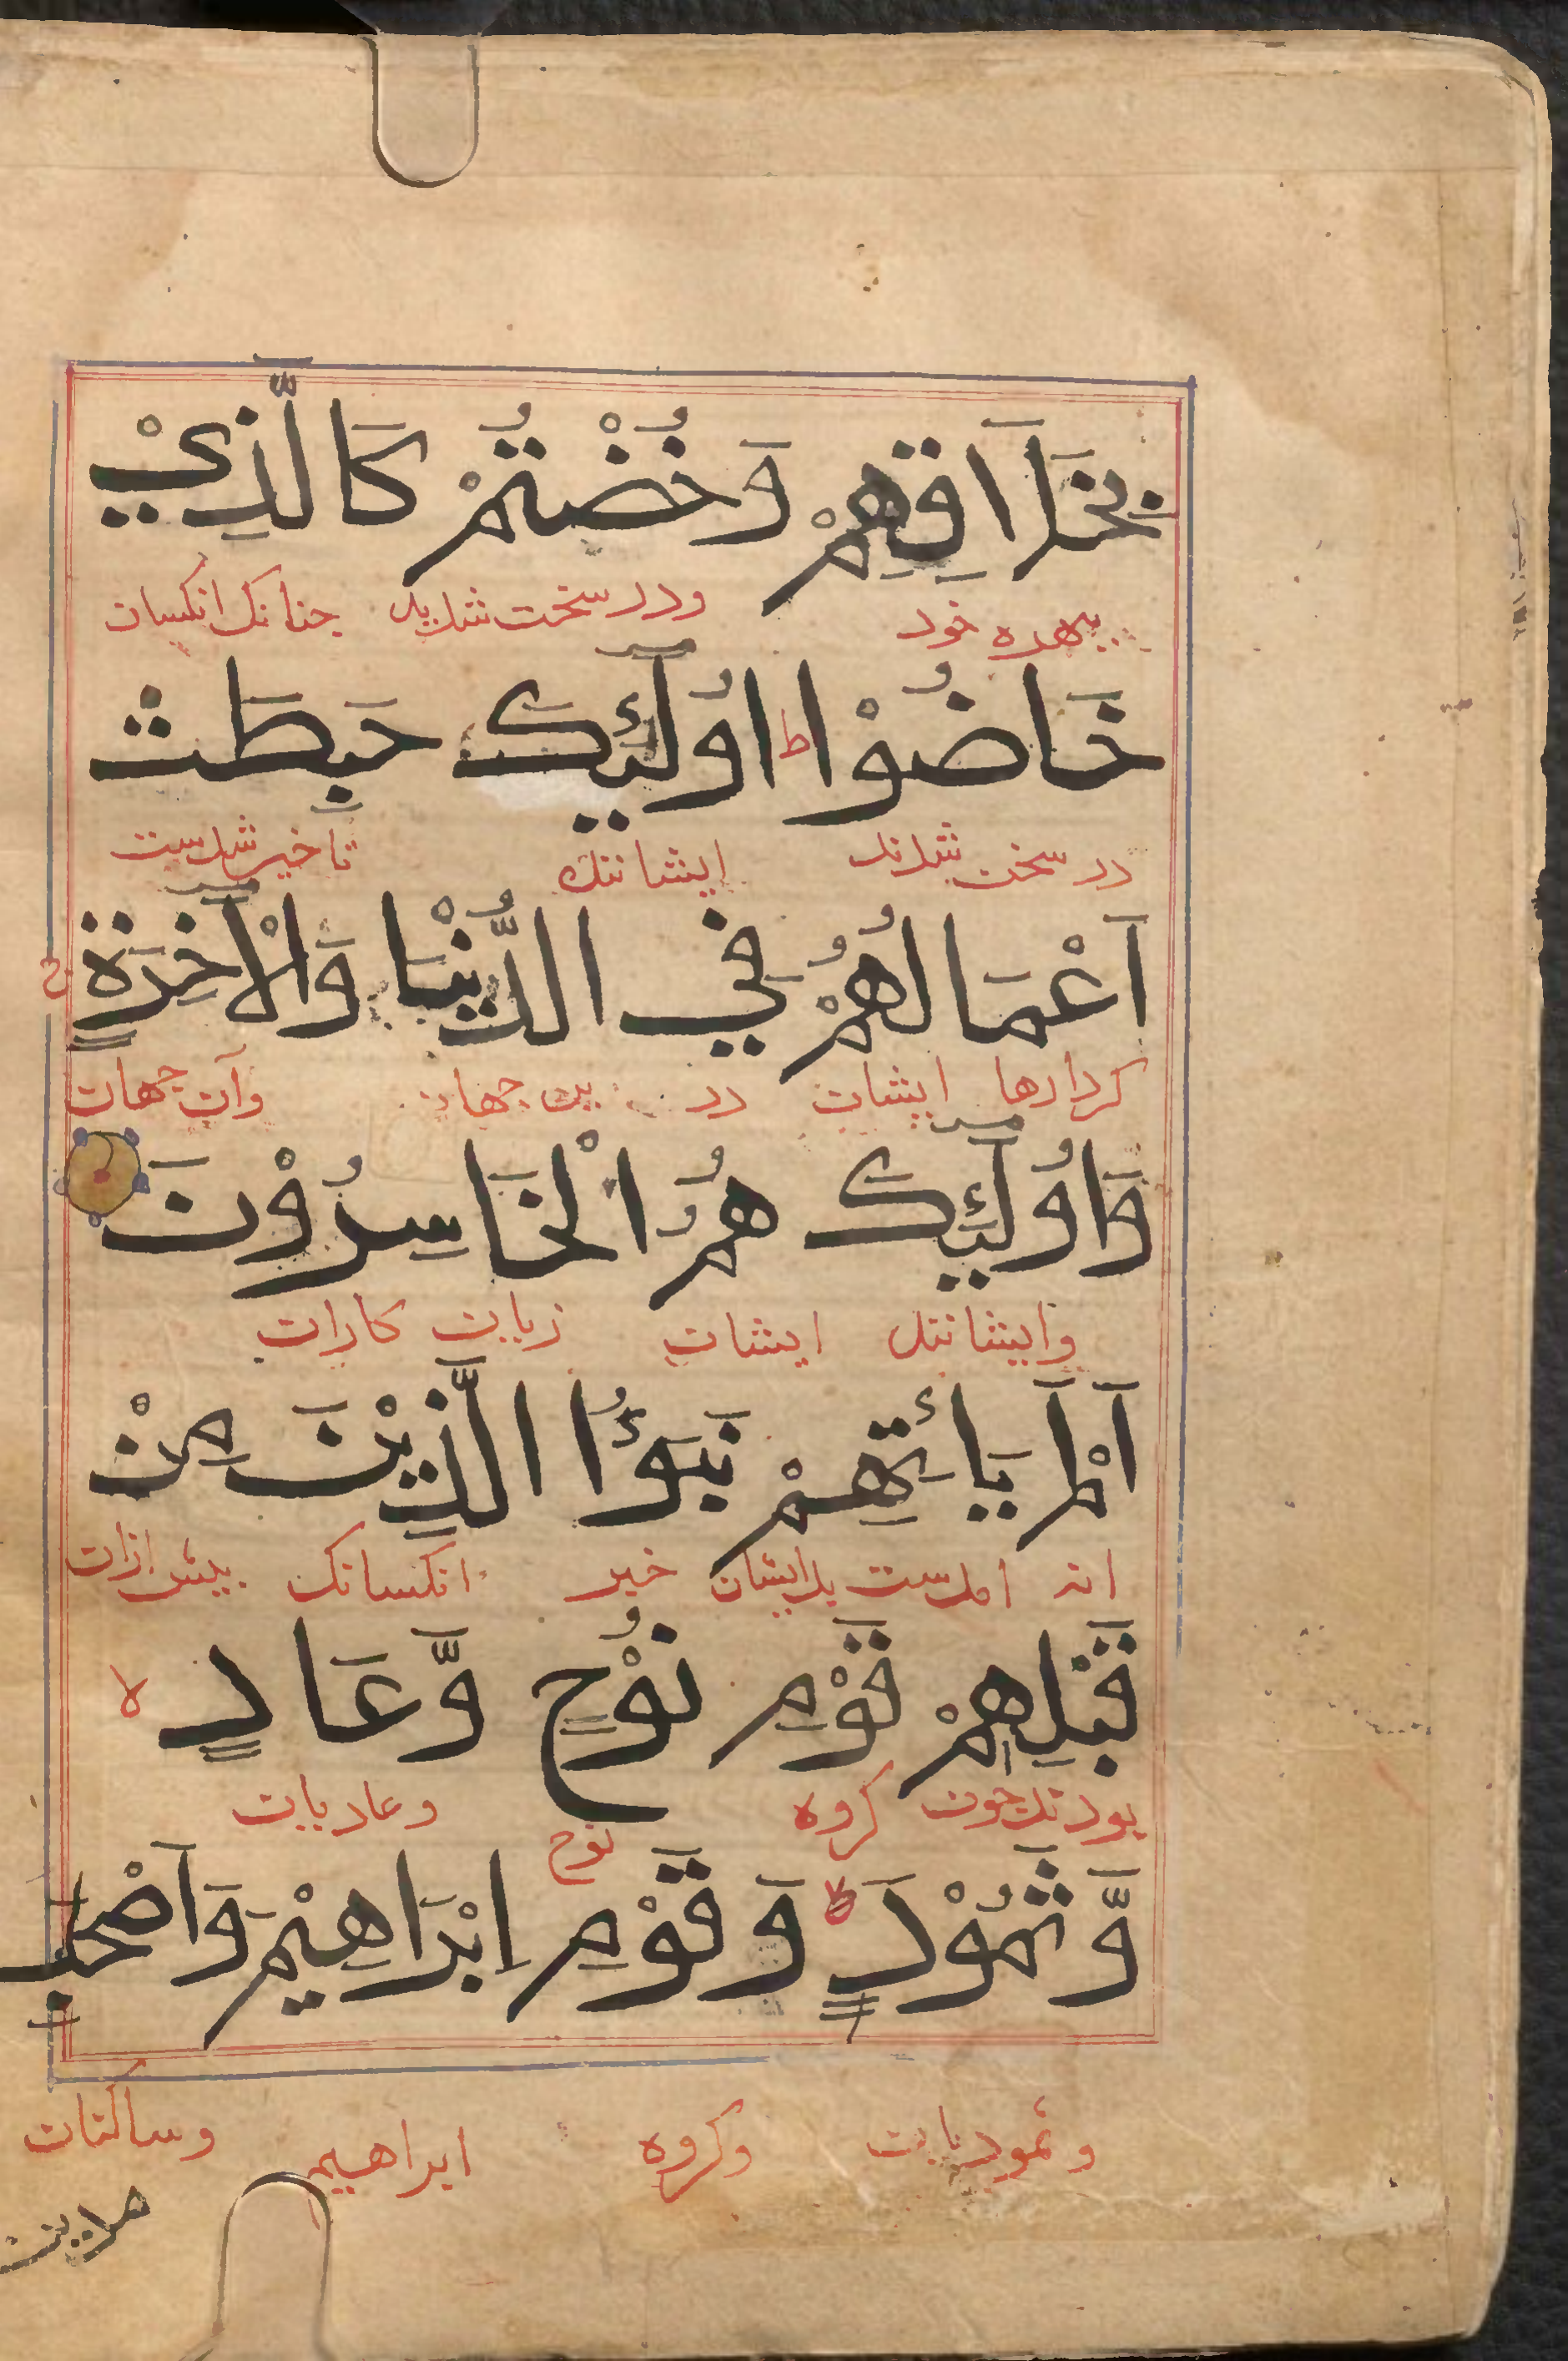 بِخَلَاقِهِمْ وَخُضْتُمْ كَالَّذِيْ
ببهره خود ودر سخن شديد جنانك انكسان
خَاضُوْا ط اُولٰٓئِكَ حَبِطَتْ
در سخن شدند ايشانند
اَعْمَالُهُمْ فِي الدُّنْيَا وَالْاٰخِرَةِ ج
كردارها ايشان در ين جهان وآن جهان
وَاُولٰٓئِكَ هُمُ الْخَاسِرُوْنَ
وايشانند ايشان زيان كاران
اَلَمْ يَأْتِهِمْ نَبَؤُا الَّذِيْنَ مِنْ
انه امدست بدايشان خبر انكسانك بيش ازان
قَبْلِهِمْ قَوْمِ نُوْحٍ وَّعَادٍ لا
بودند چون كروه نوح وعاديان
وَّثَمُوْدَ لا وَقَوْمِ اِبْرَاهِيْمَ وَاَصْحٰبِ
وثموديان وكروه ابراهيم وساكنان
مدين